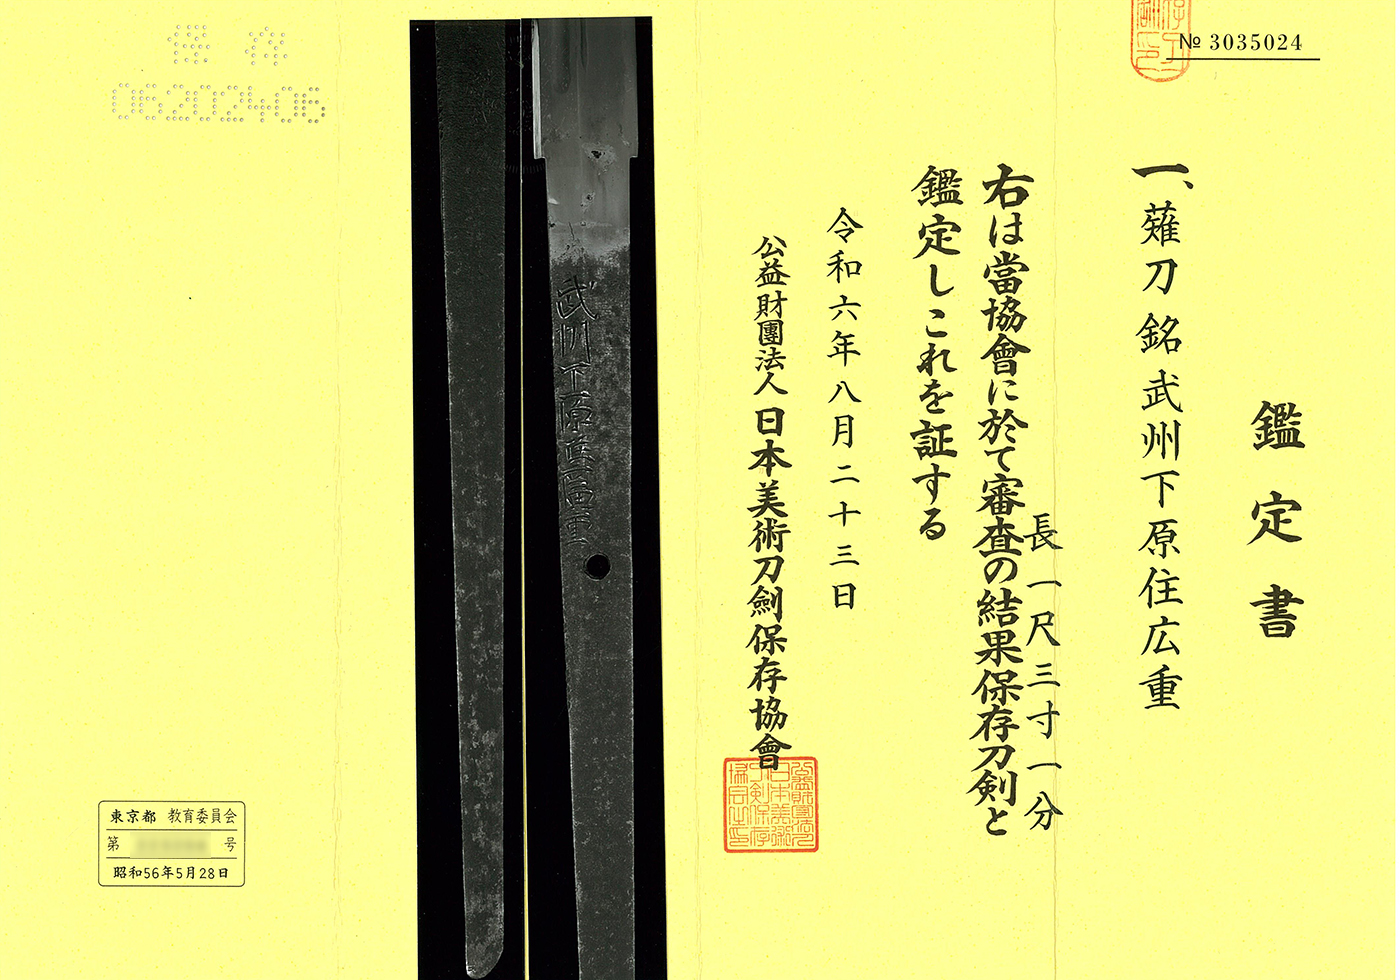 № 3035024
鑑定書
一、薙刀 銘 武州下原住広重
長一尺三寸一分
右は當協會に於て審査の結果保存刀剣と
鑑定しこれを証する
令和六年八月二十三日
公益財團法人 日本美術刀劍保存協會
武州下原住広重
保存
06202406
東京都 教育委員会
第 号
昭和56年5月28日